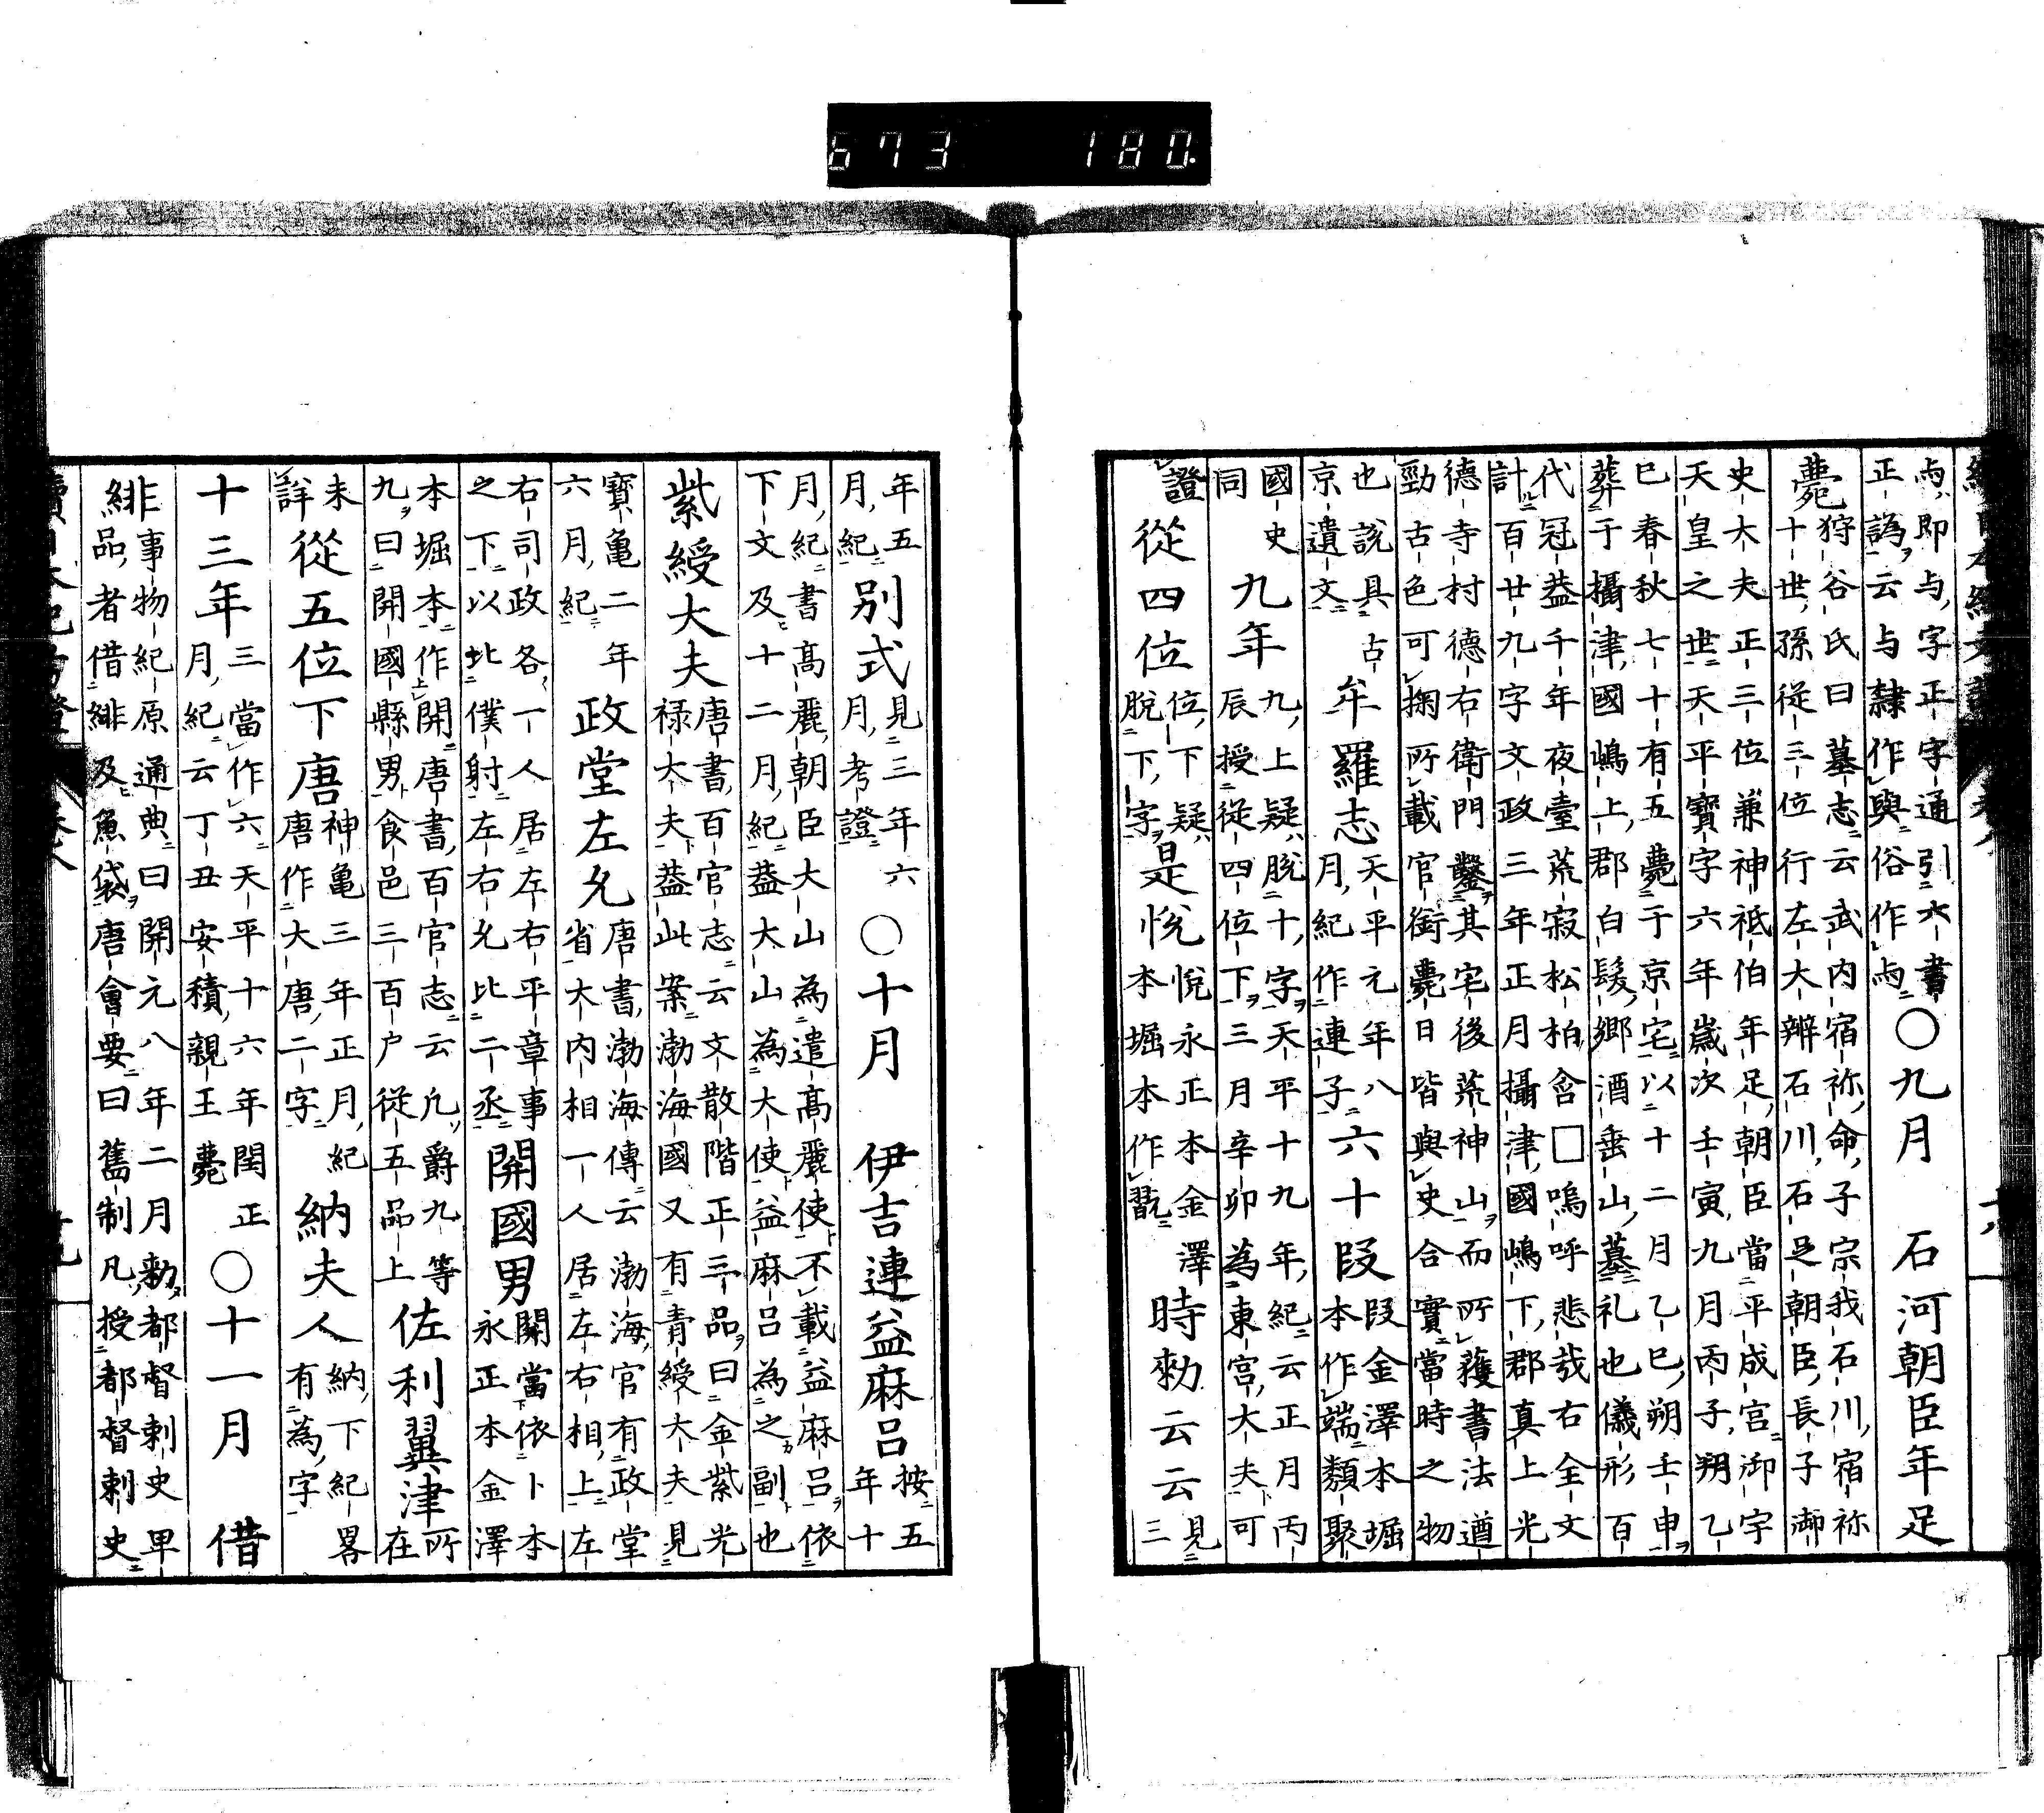 673 180.
与、即与、字正字通引六書
正譌云与隸作與俗作与○九月 石河朝臣年足
薨狩谷氏曰墓志云武内宿祢命子宗我石川宿祢
十世孫從三位行左大辨石川石足朝臣長子御
史大夫正三位兼神祇伯年足朝臣當平成宮御宇
天皇之世天平寶字六年歳次壬寅九月丙子朔乙
巳春秋七十有五薨于京宅以十二月乙巳朔壬申
葬于攝津國嶋上郡白髮郷酒垂山墓礼也儀形百
代冠盖千年夜臺荒寂松柏含□嗚呼悲哉右全文
計百廿九字文政三年正月攝津國嶋下郡真上光
德寺村德右衛門鑿其宅後荒神山而所獲書法遒
勁古色可掬所載官銜薨日皆與史合實當時之物
也説具古
京遺文牟羅志天平元年八
月紀作連子六十段段金澤本堀
本作端類聚
國史
同九年九上疑脱十字天平十九年紀云正月丙
辰授從四位下三月辛卯為東宮大夫可
證從四位位下疑
脱下字是悅悅永正本金澤
本堀本作翫時勅云云見
三
年五
月紀別式見三年六
月考證○十月 伊吉連益麻呂按五
年十
月紀書高麗朝臣大山為遣高麗使不載益麻呂依
下文及十二月紀盖大山為大使益麻呂為之副也
紫綬大夫唐書百官志云文散階正三品曰金紫光
禄大夫盖此案渤海國又有青綬大夫見
寶亀二年
六月紀政堂左允唐書渤海傳云渤海官有政堂
省大内相一人居左右相上左
右司政各一人居左右平章事
之下以比僕射左右允比二丞開國男開當依卜本
永正本金澤
本堀本作開唐書百官志云凡爵九等
九曰開國縣男食邑三百户從五品上佐利翼津所
在
未
詳從五位下唐神亀三年正月紀
唐作大唐二字納夫人納下紀畧
有為字
十三年三當作六天平十六年閏正
月紀云丁丑安積親王薨○十一月 借
緋事物紀原通典曰開元八年二月勅都督刺史卑
品者借緋及魚袋唐會要曰舊制凡授都督刺史